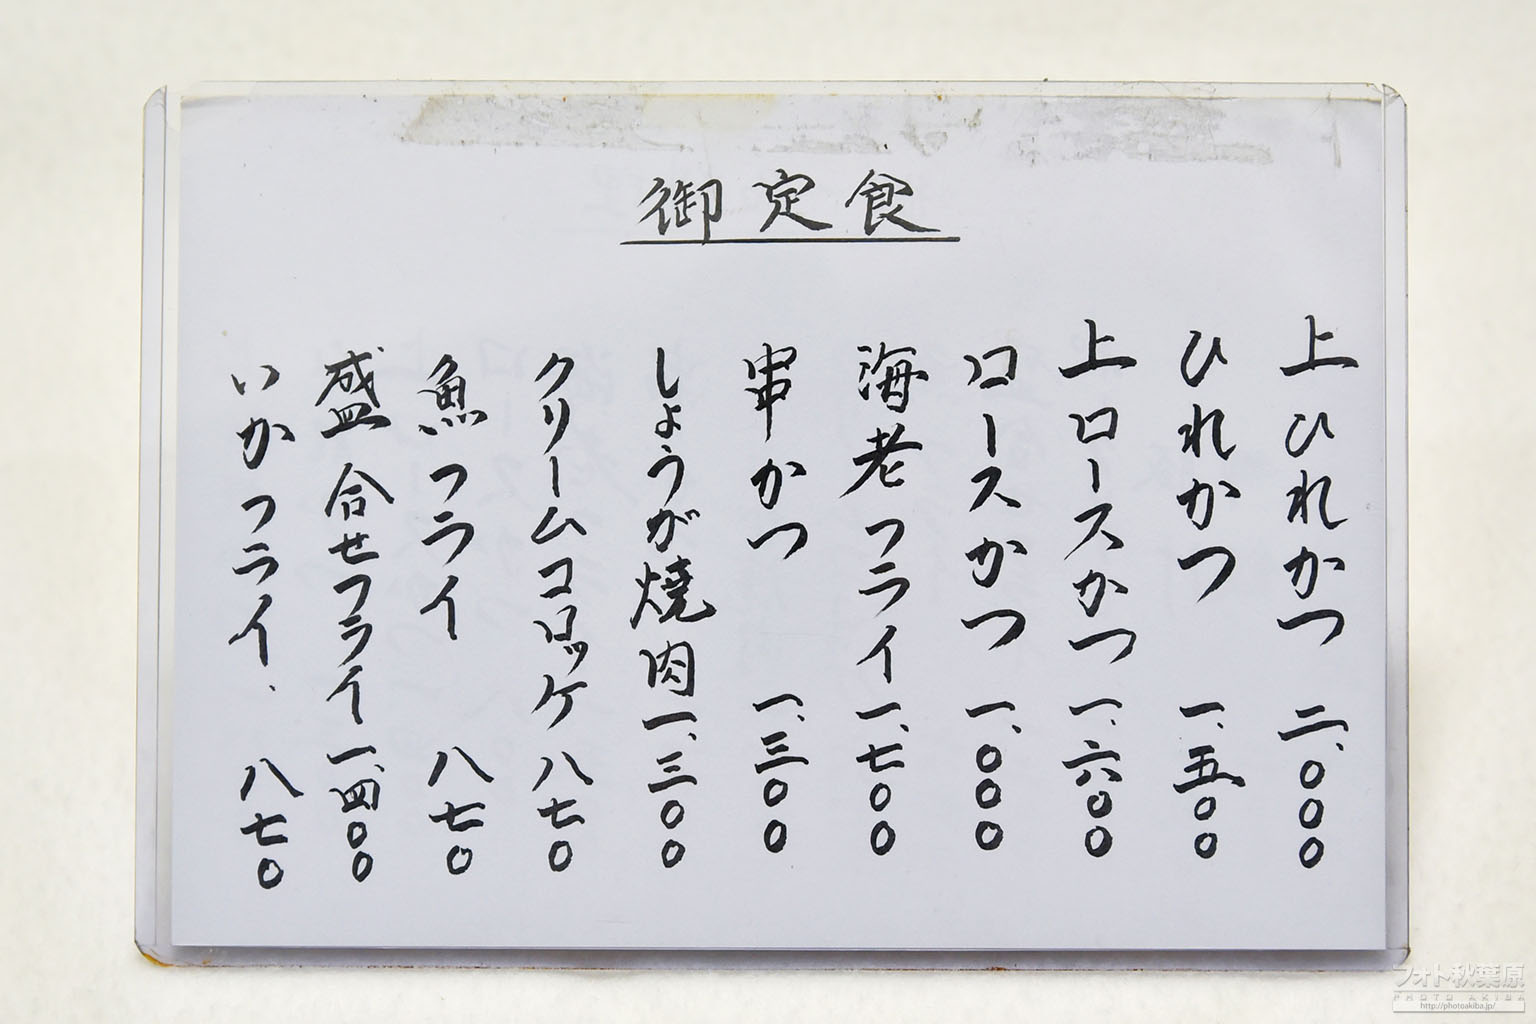 御定食
上ひれかつ 二、〇〇〇
ひれかつ 一、五〇〇
上ロースかつ 一、六〇〇
ロースかつ 一、〇〇〇
海老フライ 一、七〇〇
串かつ 一、三〇〇
しょうが焼肉 一、三〇〇
クリームコロッケ 八七〇
魚フライ 八七〇
盛合せフライ 一、四〇〇
いかフライ 八七〇
フォト秋葉原
PHOTO AKIBA
http://photoakiba.jp/